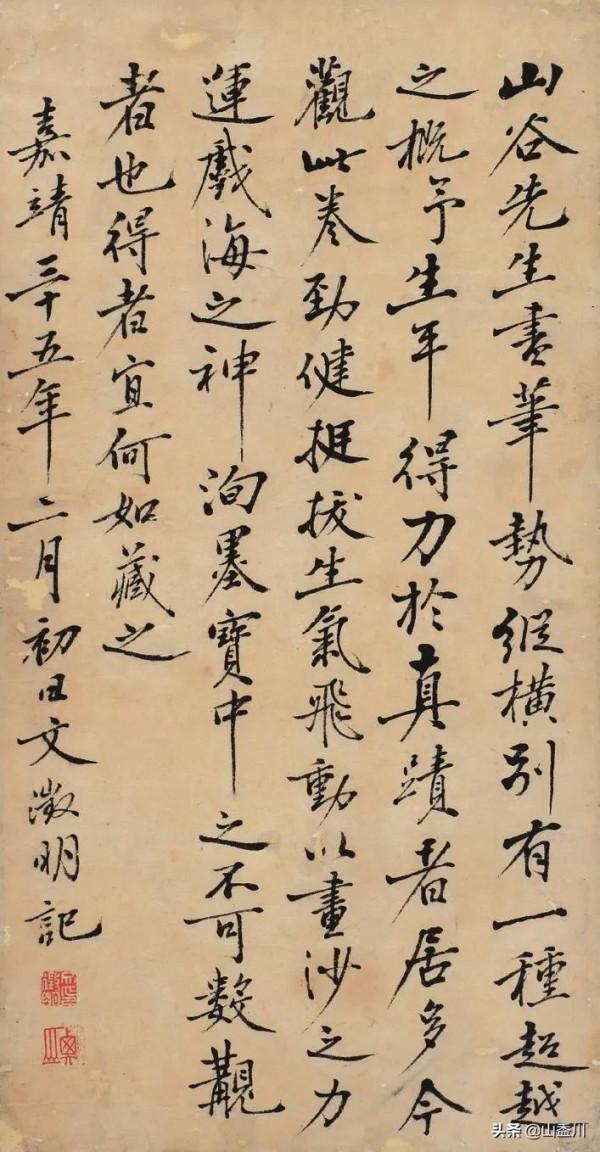 山谷先生書筆勢縱橫別有一種超越
之概予生平得力於真蹟者居多今
觀此卷勁健挺拔生氣飛動以畫沙之力
運戲海之神洵墨寶中之不可數覯
者也得者宜何如藏之
嘉靖三十五年二月初日文徵明記
头条 @山盉川